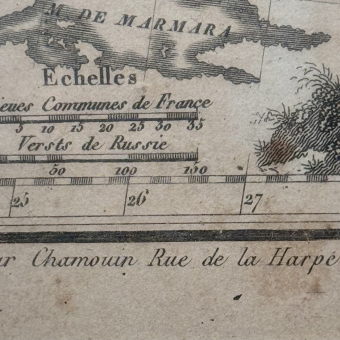 M. DE MARMARA
Echelles
ieues Communes de France
5 10 15 20 25 30 35
Versts de Russie
50 100 150
25 26 27
ar Chamouin Rue de la Harpe